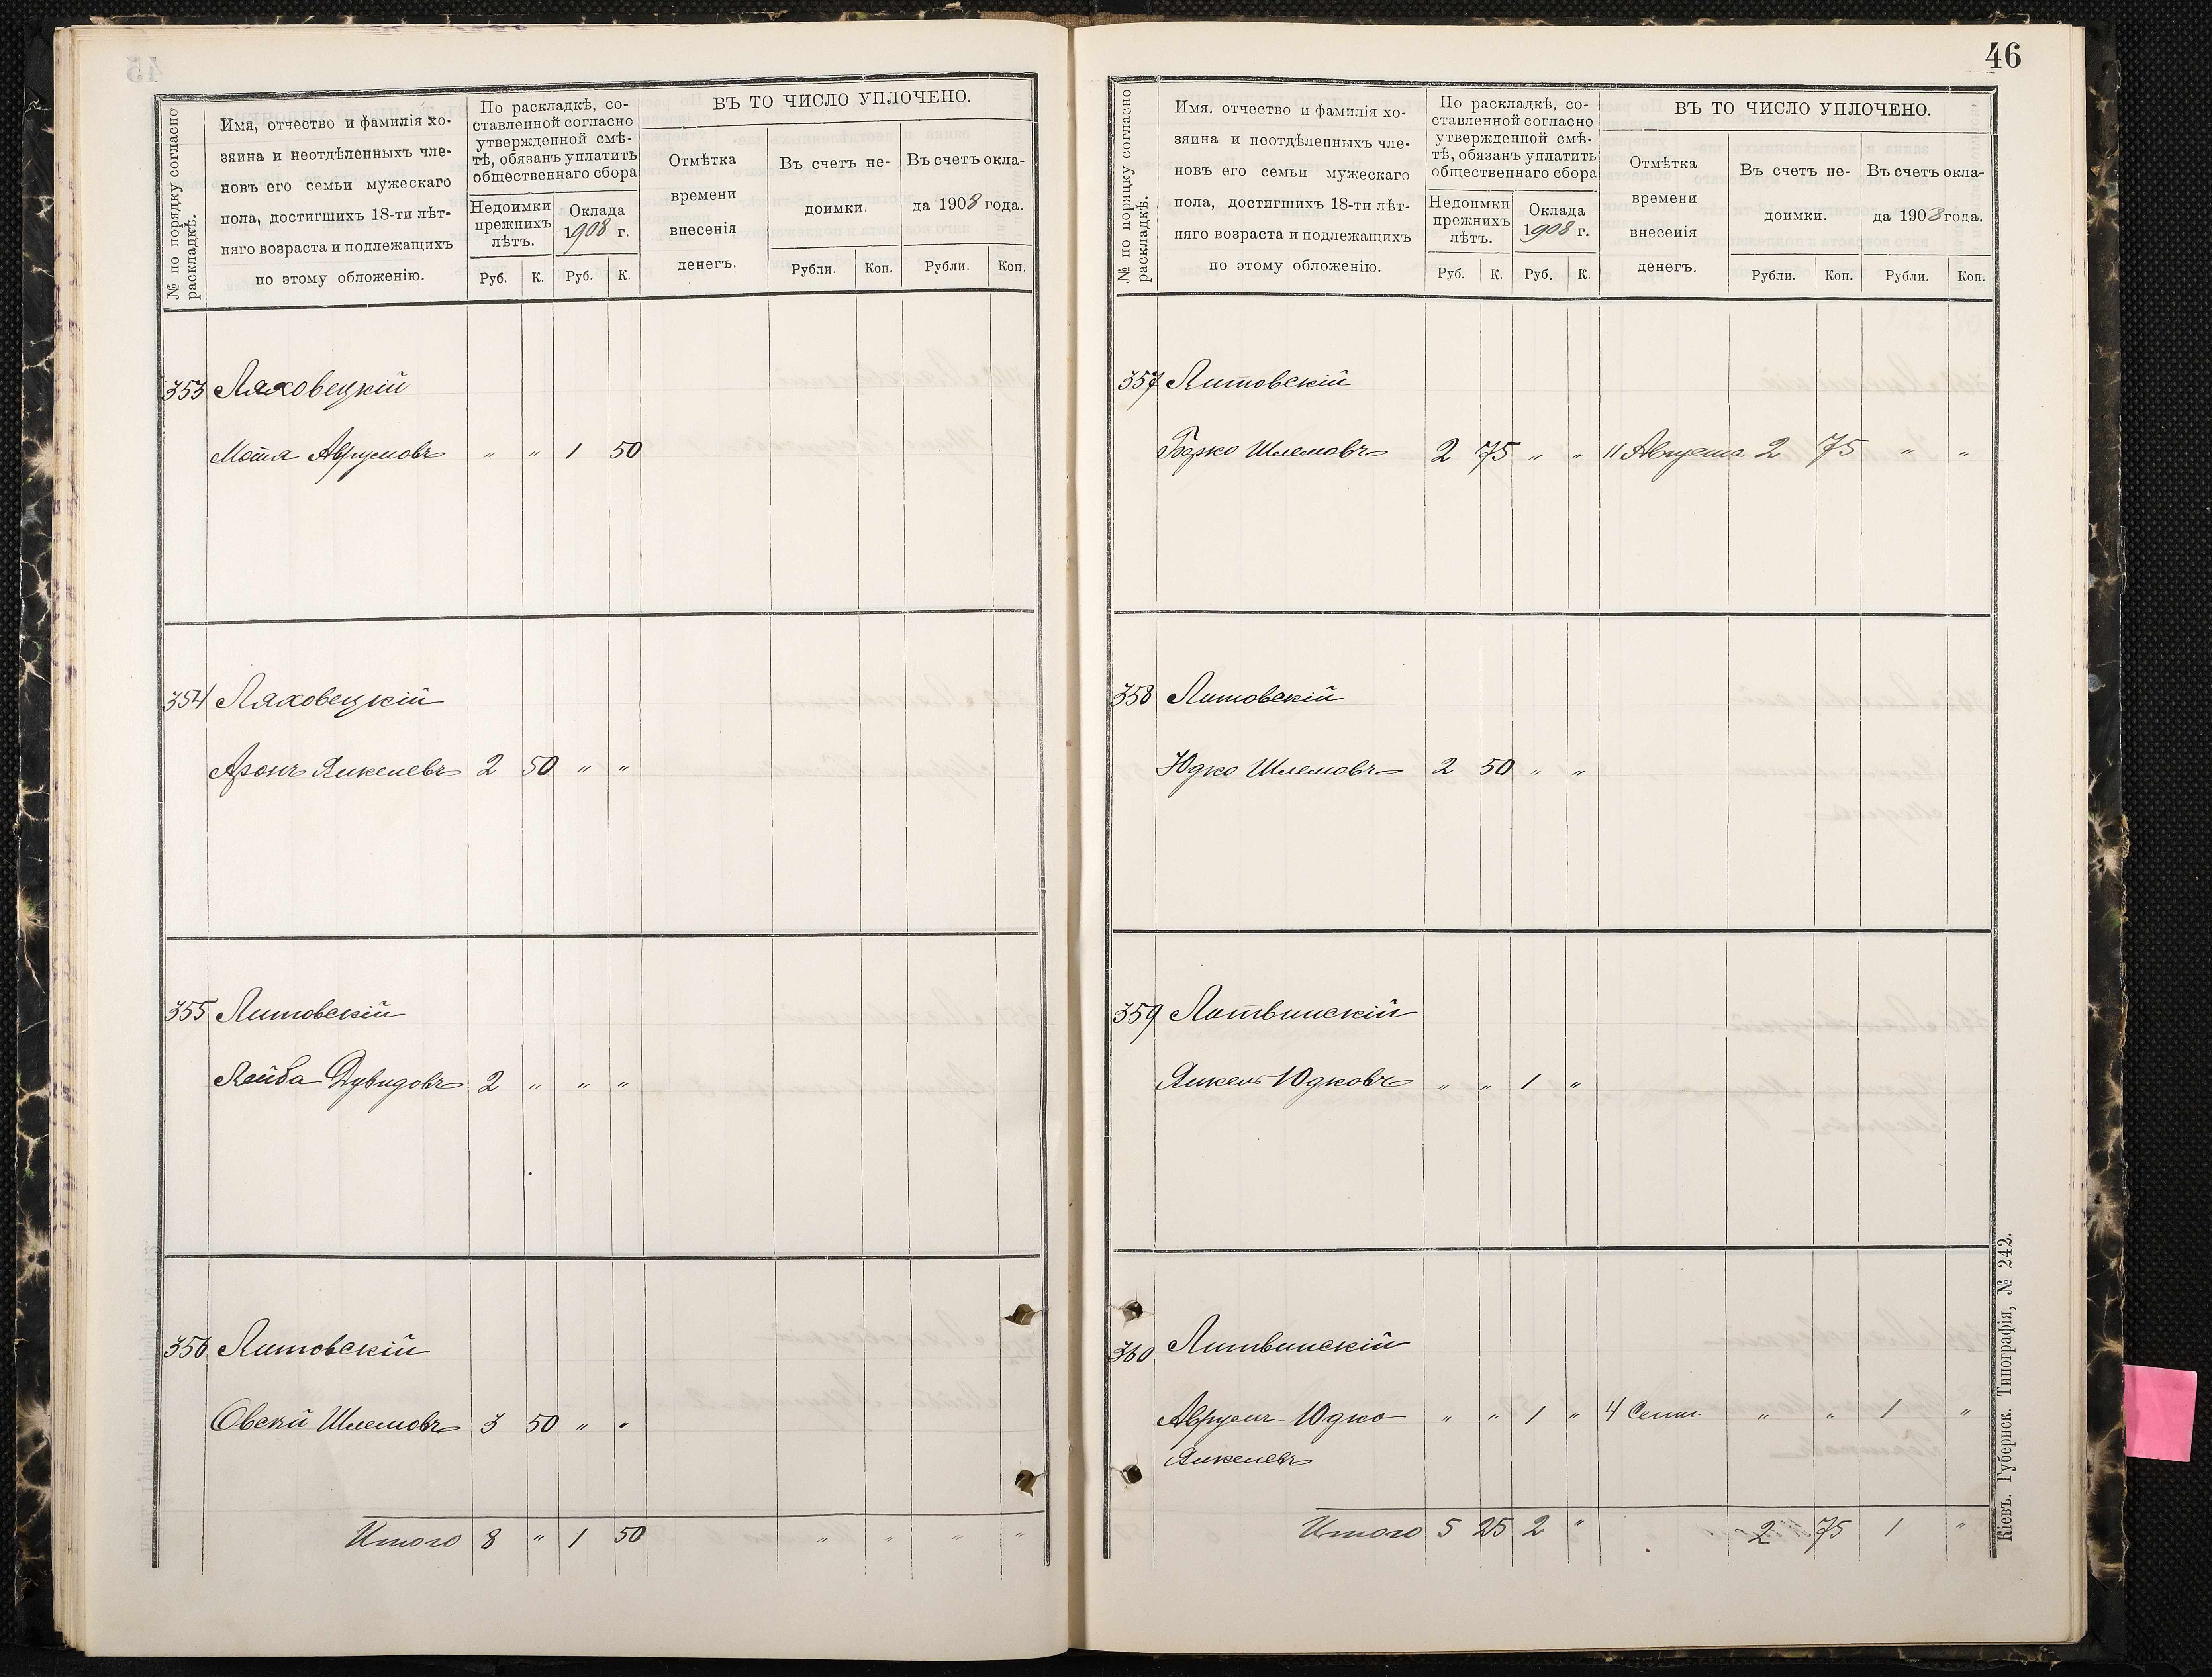 № по порядку согласно
раскладкѣ.
Имя, отчество и фамилія хо-
зяина и неотдѣленныхъ чле-
новъ его семьи мужескаго
пола, достигшихъ 18-ти лѣт-
няго возраста и подлежащихъ
по этому обложенію.
По раскладкѣ, со-
ставленной согласно
утвержденной смѣ-
тѣ, обязанъ уплатить
общественнаго сбора
Недоимки
прежнихъ
лѣтъ.
Оклада
1908 г.
Руб. К. Руб. К.
ВЪ ТО ЧИСЛО УПЛОЧЕНО.
Отмѣтка
времени
внесенія
денегъ.
Въ счетъ не-
доимки.
Въ счетъ окла-
да 1908 года.
Рубли. Коп. Рубли. Коп.
353 Ляховецкій
Мотя Аврумовъ " " 1 50
354 Ляховецкій
Аронъ Янкелевъ 2 50 " "
355 Литовскій
Лейба Дувидовъ 2 " " "
356 Литовскій
Овсей Шлемовъ 3 50 " "
Итого 8 " 1 50 " " " "
46
№ по порядку согласно
раскладкѣ.
Имя. отчество и фамилія хо-
зяина и неотдѣленныхъ чле-
новъ его семьи мужескаго
пола, достигшихъ 18-ти лѣт-
няго возраста и подлежащихъ
по этому обложенію.
По раскладкѣ, со-
ставленной согласно
утвержденной смѣ-
тѣ, обязанъ уплатить
общественнаго сбора
Недоимки
прежнихъ
лѣтъ.
Оклада
1908 г.
Руб. К. Руб. К.
ВЪ ТО ЧИСЛО УПЛОЧЕНО.
Отмѣтка
времени
внесенія
денегъ.
Въ счетъ не-
доимки.
Въ счетъ окла-
да 1908 года.
Рубли. Коп. Рубли. Коп.
357 Литовскій
Берко Шлемовъ 2 75 " " 11 Августа 2 75 " "
358 Литовскій
Юдко Шлемовъ 2 50 " "
359 Литвинскій
Янкель Юдковъ " " 1 "
360 Литвинскій
Аврумъ-Юдко " " 1 " 4 Сент. " " 1 "
Янкелевъ
Итого 5 25 2 " 2 75 1 "
Кіевъ. Губернск. Типографія, № 242.